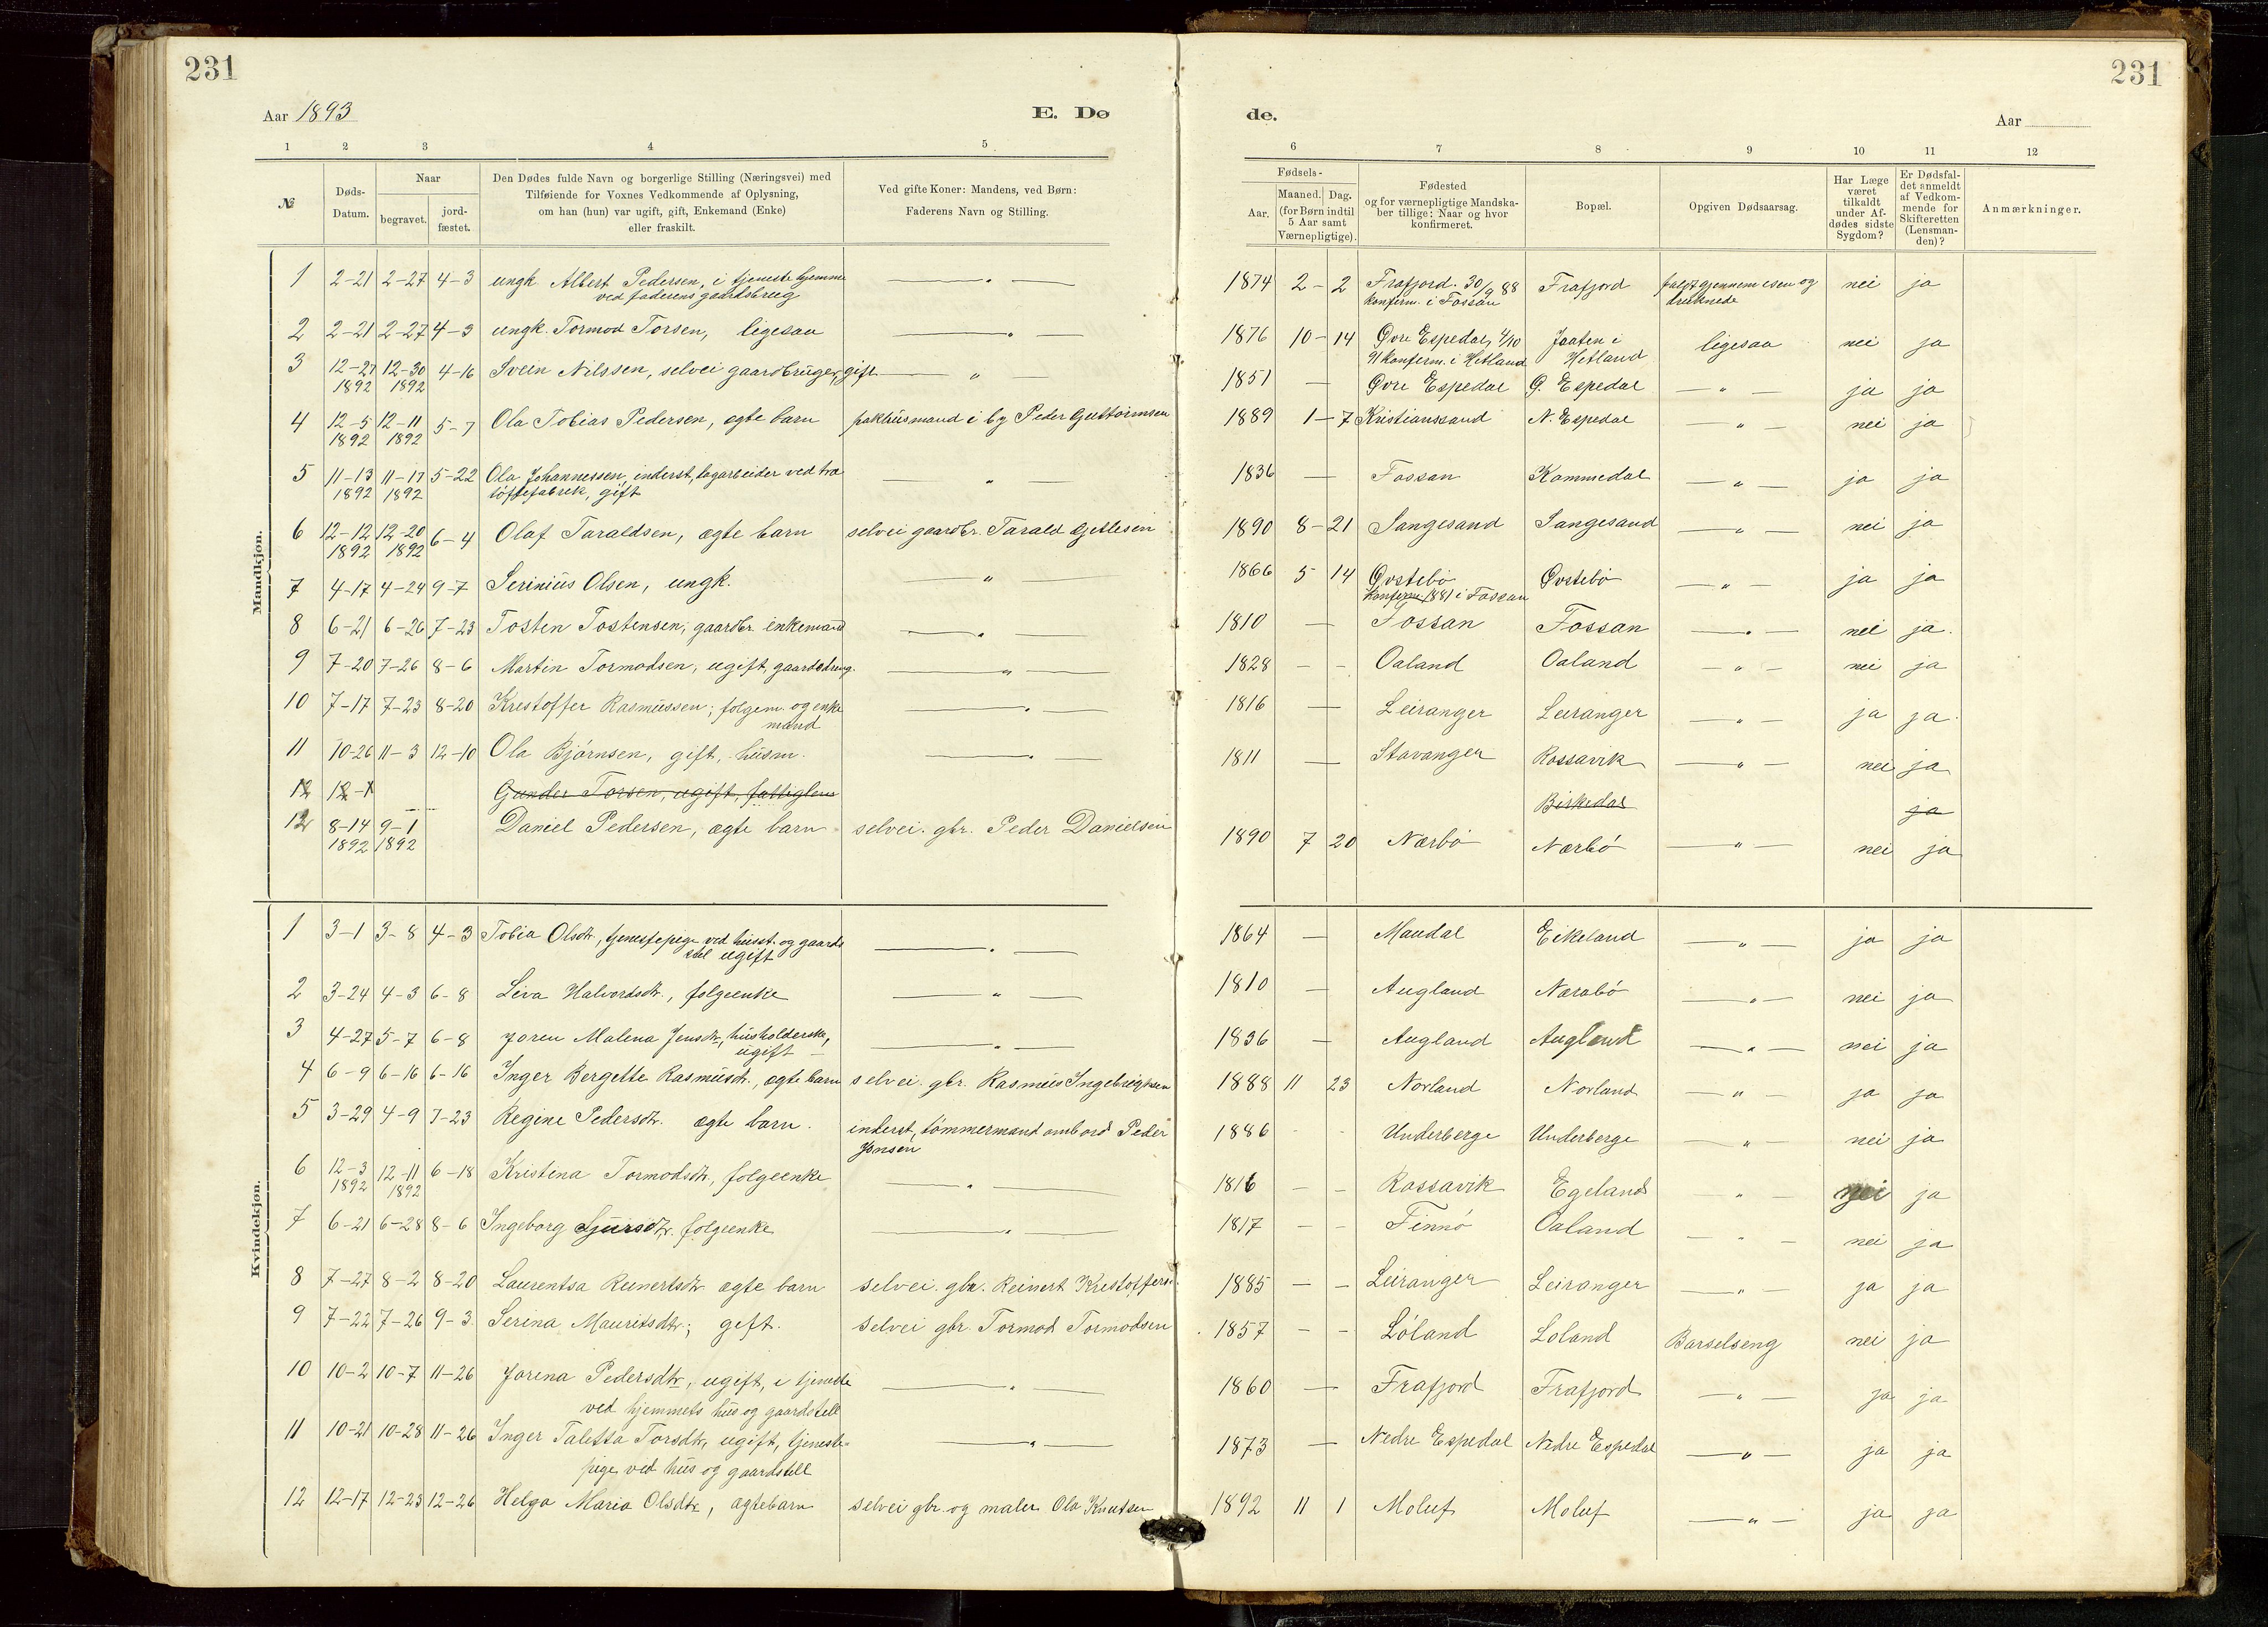 231
231
Aar 1893
E. Dø
de.
Aar
1 2 3 4 5
6 7 8 9 10 11 12
№
Døds-Datum.
Naar
begravet.
jord-fæstet.
Den Dødes fulde Navn og borgerlige Stilling (Næringsvei) med
Tilføiende for Voxnes Vedkommende af Oplysning,
om han (hun) var ugift, gift, Enkemand (Enke)
eller fraskilt.
Ved gifte Koner: Mandens, ved Børn:
Faderens Navn og Stilling.
Fødsels-
Aar.
Maaned. Dag.
(for Børn indtil
5 Aar samt
Værnepligtige).
Fødested
og for værnepligtige Mandska-
ber tillige: Naar og hvor
konfirmeret.
Bopæl.
Opgiven Dødsaarsag.
Har Læge
været
tilkaldt
under Af-
dødes sidste
Sygdom?
Er Dødsfal-
det anmeldt
af Vedkom-
mende for
Skifteretten
(Lensman-
den)?
Anmærkninger.
Mandkjøn.
1 2-21 2-27 4-3 ungk. Albert Pedersen, i tjeneste hjemme — " — 1874 2-2 Frafjord. 30/9 88 Frafjord faldt gjennem isen og nei ja
ved faderens gaardsbrug konferm. i Fossan druknede
2 2-21 2-27 4-3 ungk. Tormod Torsen, ligesaa — " — 1876 10-14 Øvre Espedal, 4/10 Jaaten i ligesaa nei ja
91 konferm. i Hetland Hetland
3 12-27 12-30 4-16 Svein Nilssen, selvei gaardbruger, gift — " — 1851 — Øvre Espedal Ø. Espedal — " — ja ja
1892 1892
4 12-5 12-11 5-7 Ola Tobias Pedersen, ægte barn pakhusmand i by Peder Guttormsen 1889 1-7 Kristianssand N. Espedal — " — nei ja
1892 1892
5 11-13 11-17 5-22 Ola Johannessen, inderst, lagarbeider ved træ — " — 1836 — Fossan Kommedal — " — ja ja
1892 1892 töffelfabrik, gift
6 12-12 12-20 6-4 Olaf Taraldsen, ægte barn selvei gaardbr. Tarald Gjetlesen 1890 8-21 Sangesand Sangesand — " — nei ja
1892 1892
7 4-17 4-24 9-7 Serinius Olsen, ungk. — " — 1866 5 14 Øvstebø Øvstebø — " — ja ja
konferm. 1881 i Fossan
8 6-21 6-26 7-23 Tosten Tostensen, gaardbr. enkemand — " — 1810 — Fossan Fossan — " — nei ja.
9 7-20 7-26 8-6 Martin Tormodsen, ugift, gaardsdreng. — " — 1828 - - Oaland Oaland — " — nei ja
10 7-17 7-23 8-20 Krestoffer Rasmussen; folgem. og enke — " — 1816 — Leiranger Leiranger — " — ja ja.
mand
11 10-26 11-3 12-10 Ola Bjørnsen, gift, husm. — " — 1811 — Stavanger Rossavik — " — nei ja
12 12-1 Gunder Torsen, ugift, fattiglem Birkedal ja
12 8-14 9-1 Daniel Pedersen, ægte barn selvei. gbr. Peder Danielsen 1890 7 20 Nærbö Nærbö — " — nei ja
1892 1892
Kvindekjøn.
1 3-1 3-8 4-3 Tobia Olsdtr, tjenestepige ved husst. og gaards — " — 1864 — Maudal Eikeland — " — ja ja
stel ugift
2 3-24 4-3 6-8 Siva Halvordsdtr., folgeenke — " — 1810 — Augland Nærabö — " — nei ja
3 4-27 5-7 6-8 Joren Malena Jensdtr, husholderske, — " — 1836 — Augland Augland — " — nei ja
ugift
4 6-9 6-16 6-16 Inger Bergette Rasmusdtr., ægte barn selvei. gbr. Rasmus Ingebrigtsen 1888 11 23 Norland Norland — " — ja ja
5 3-29 4-9 7-23 Regine Pedersdtr. ægte barn. inderst, tömmermand ombord Peder 1886 - - Underberge Underberge — " — nei ja
Jensen
6 12-3 12-11 6-18 Kristina Tormodsdtr, folgeenke — " — 1816 - - Rossavik Egeland — " — nei ja
1892 1892
7 6-21 6-28 8-6 Ingeborg Sjursdtr. folgeenke — " — 1817 - - Finnö Oaland — " — nei ja
8 7-27 8-2 8-20 Laurentsa Reinertsdtr ægte barn selvei. gbr. Reinert Krestoffers. 1885 - - Leiranger Leiranger — " — ja ja
9 7-22 7-26 9-3 Serina Mauritsdtr; gift. selvei gbr. Tormod Tormodsen 1857 - - Löland Loland Barselseng nei ja
10 10-2 10-7 11-26 Jorina Pedersdtr, ugift, i tjeneste — " — 1860 — Frafjord Frafjord — " — ja ja
ved hjemmets hus og gaardstell
11 10-21 10-28 11-26 Inger Taletta Torsdtr, ugift, tjeneste- — " — 1873 — Nedre Espedal Nedre Espedal — " — ja ja
pige ved hus og gaardstell
12 12-17 12-23 12-26 Helga Maria Olsdtr, ægtebarn selvei gbr. og maler Ola Knutsen 1892 11 1 Moluf Moluf — " — ja ja